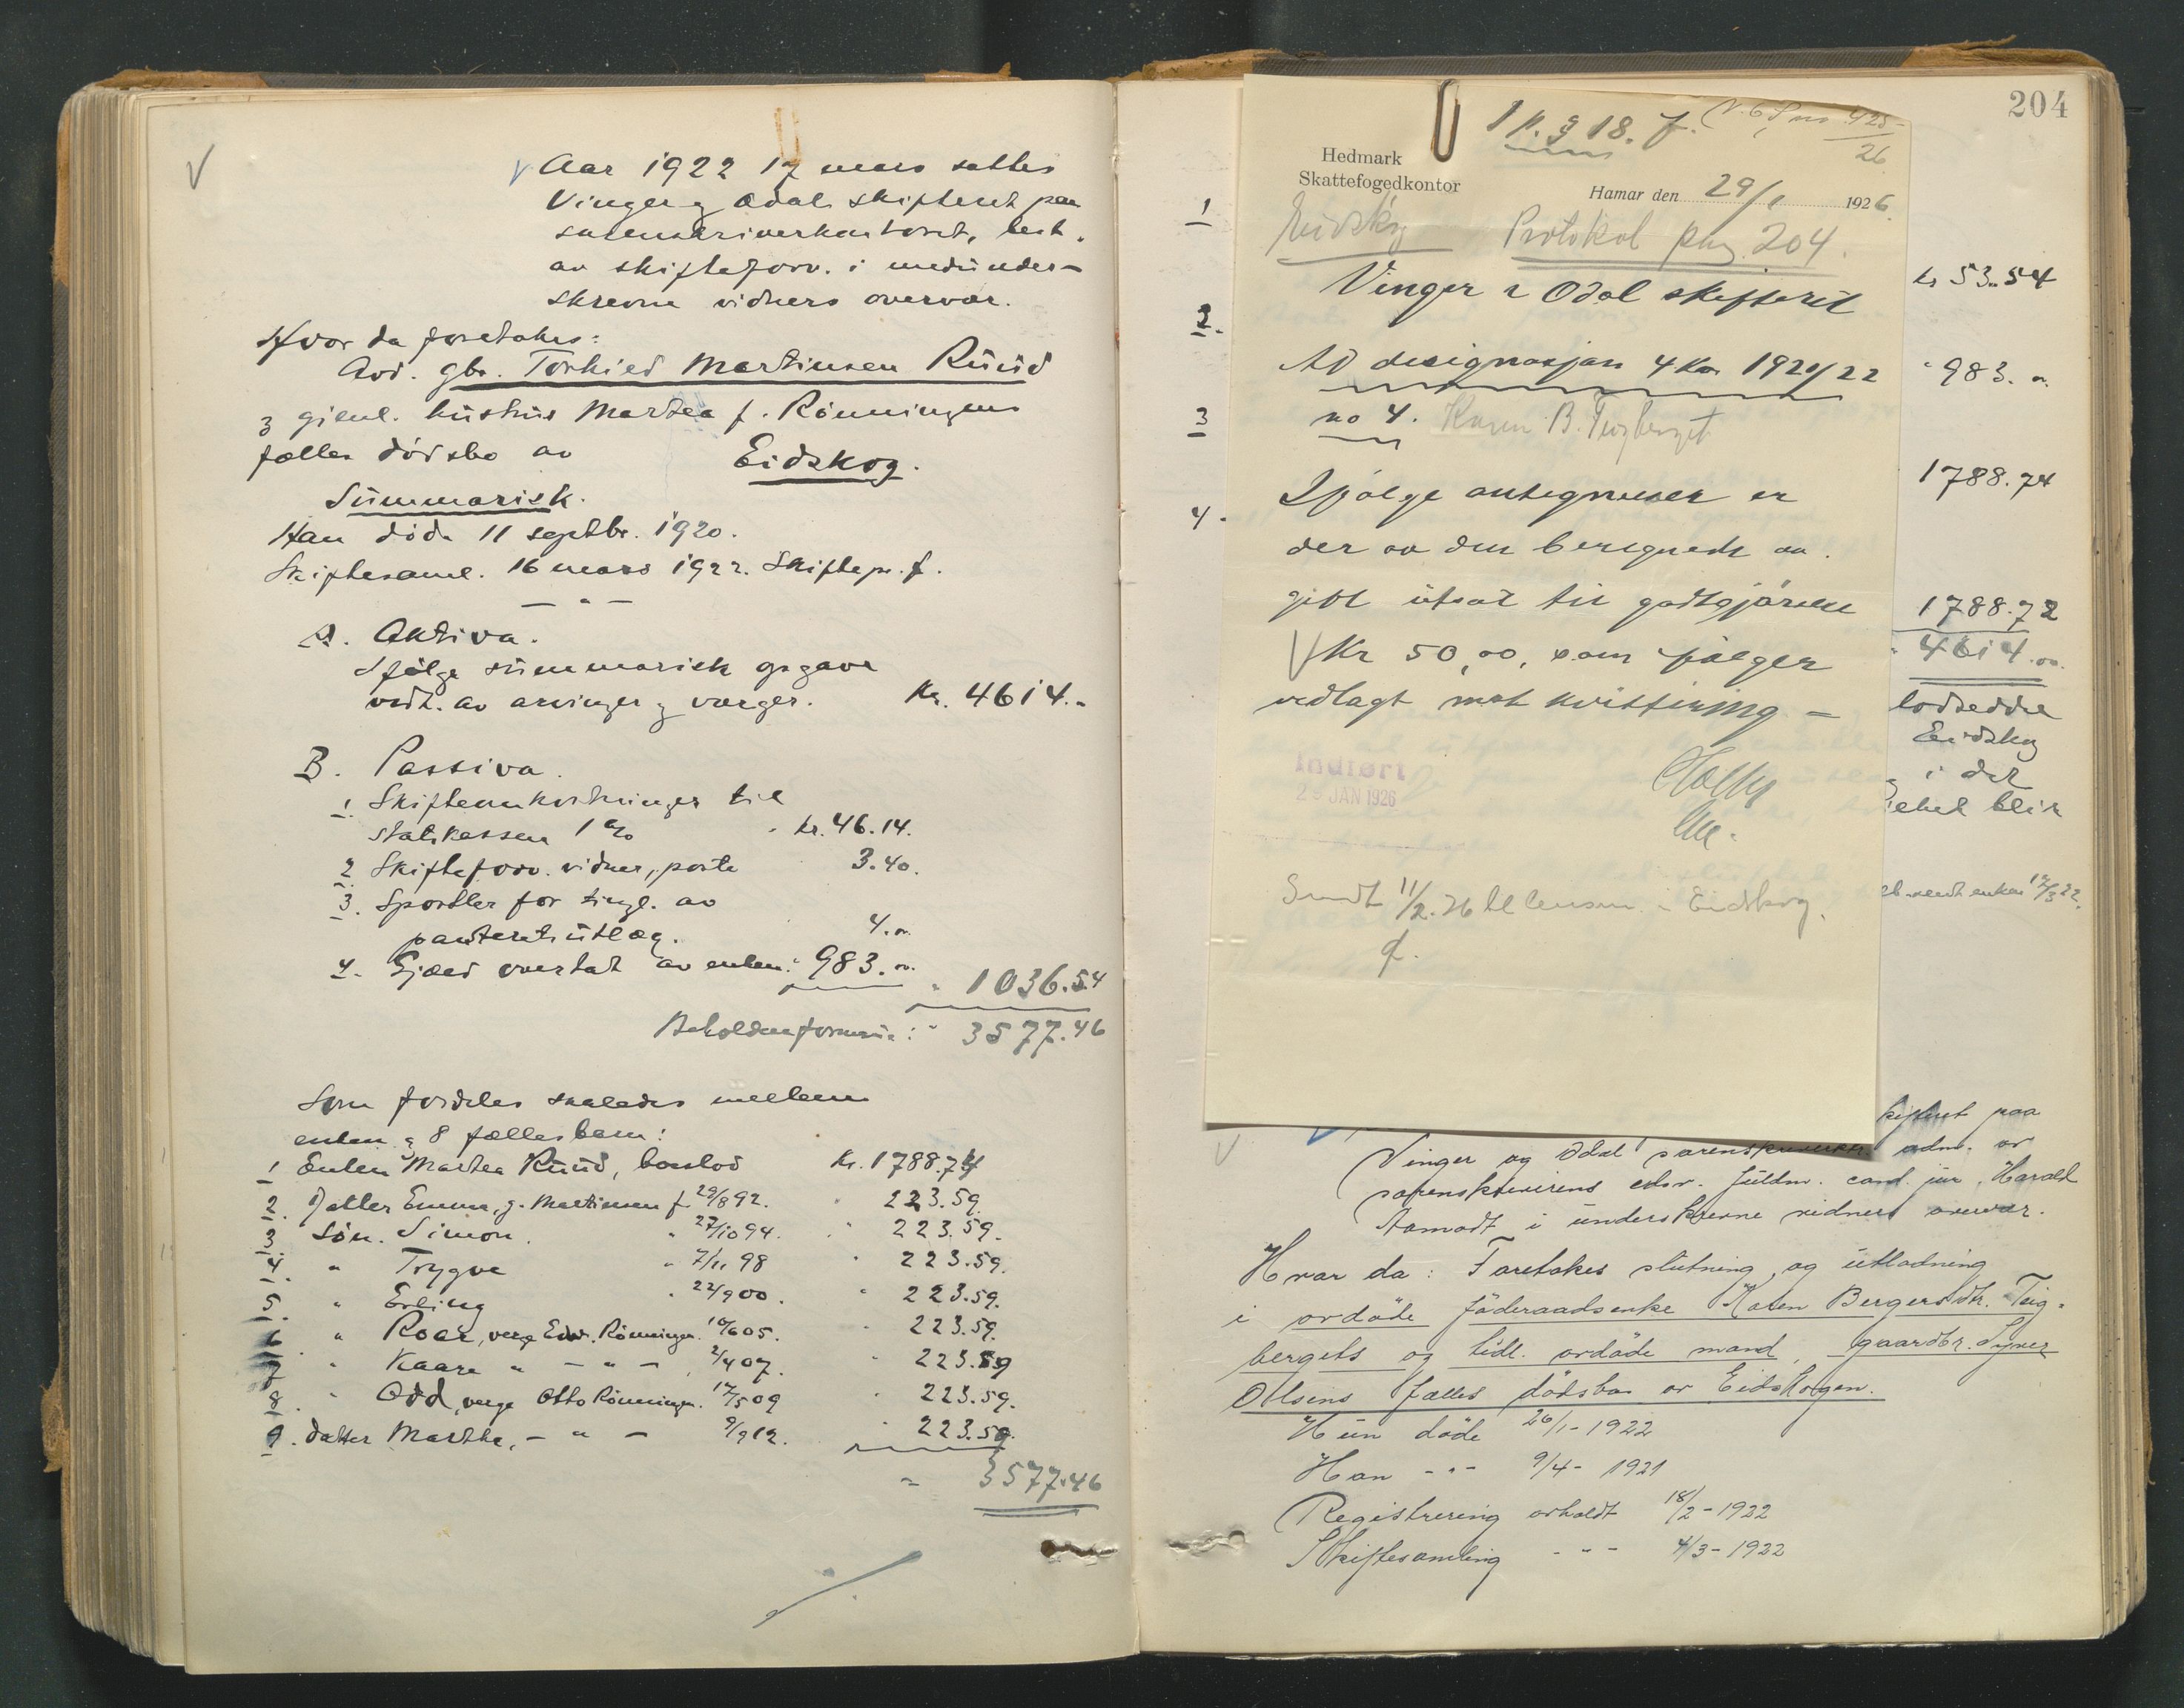 Aar 1922 17 mars sattes
Vinger og Odal skifteret paa
sorenskriverkontoret, best.
av skifteforv. i medunder-
skrevne vidners overvær.
Hvor da foretokes:
Avd. gbr. Torkied Martinsen Ruud
og gjenl. hustrus Martea f. Rønningens
fælles dødsbo av Eidskog.
Summarisk.
Han døde 11 septbr. 1920.
Skiftesaml. 16 mars 1922. Skiftepr. f.
— " —
A. Aktiva.
Ifølge summarisk opgave
vedt. av arvinger og værger. Kr. 4614.-
B. Passiva.
1. Skifteomkostninger til
statskassen 1 % kr. 46.14.
2. Skifteforv. vidner, porto 3.40.
3. Sportler for tingl. av
panteretsutlæg. 4.oo
4. Gjæld overtat av enken: 983.oo " 1036.54
Beholden formue: " 3577.46
Som fordeles saaledes mellem
enken og 8 fællesbarn:
1 Enken Martea Ruud, boslod Kr. 1788.74
2. Datter Emma, g. Martinsen f. 29/8 92. " 223.59.
3. Søn. Simon. " 27/10 94. " 223.59.
4. " Trygve " 7/11 98 " 223.59.
5. " Erling " 22/9 00. " 223.59.
6 " Roar, verge Edv. Rønningen. 10/6 05. " 223.59.
7 " Kaare " — " — 2/4 07. " 223.59
8. " Odd, verge Otto Rønningen. 17/5 09 " 223.59.
9. Datter Marthe, — " — 9/9 12. " 223.59.
" 3577.46
204
1 p. § 18. f.
425
26
Hedmark
Skattefogedkontor
Hamar den 29/1 1926.
Eidskog Protokol pag. 204.
Vinger & Odal skifteret
Ad designasjon 4 kv. 1921/22
no 4. Karen B. Teigberget
Ifølge antegnelser er
der av den beregnede av-
gift utsat til godtgjørelse
Kr 50,00, som følger
vedlagt mot kvittering —
Indført
29 JAN 1926
Sendt 11/2.26 til lensm. i Eidskog.
1
2.
3
4.
kr 53.54
" 983.oo
1788.74
1788.72
" 4614.oo
lodsedde
Eidskog
i det
blir
sendt enken 17/3 22.
skifteret paa
Vinger og Odal sorenskriverktr. adm. av
sorenskriverens edsv. fuldm. cand. jur. Harald
Aamodt i underskrevne vidners overvær.
Hvor da: Foretokes slutning og utlodning
i avdøde føderaadsenke Karen Bergersdtr. Teig-
bergets og tidl. avdøde mand, gaardbr. Syver
Olsens fælles dødsbo av Eidskogen.
Hun døde 26/1-1922
Han - " - 9/4 - 1921
Registrering avholdt 18/2 - 1922
Skiftesamling - " - 4/3 - 1922